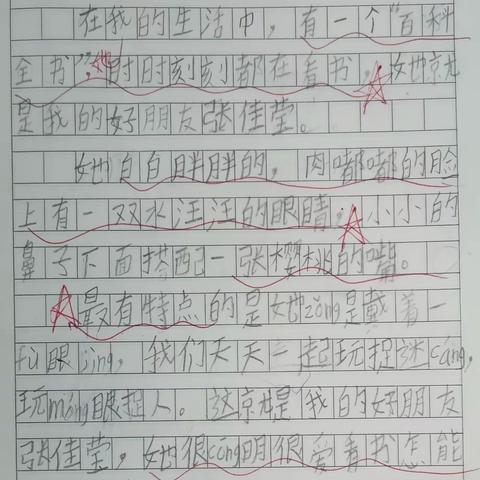 在我的生活中，有一个“百科
全书”，她时时刻刻都在看书，她就
是我的好朋友张佳莹。
她白白胖胖的，肉嘟嘟的脸
上有一双水汪汪的眼睛，小小的
鼻子下面搭配一张樱桃的嘴。
最有特点的是她zǒng是戴着一
fù眼jing，我们天天一起玩捉迷cáng，
玩máng眼捉人。这就是我的好朋友
张佳莹，她很cōng明很爱看书怎能